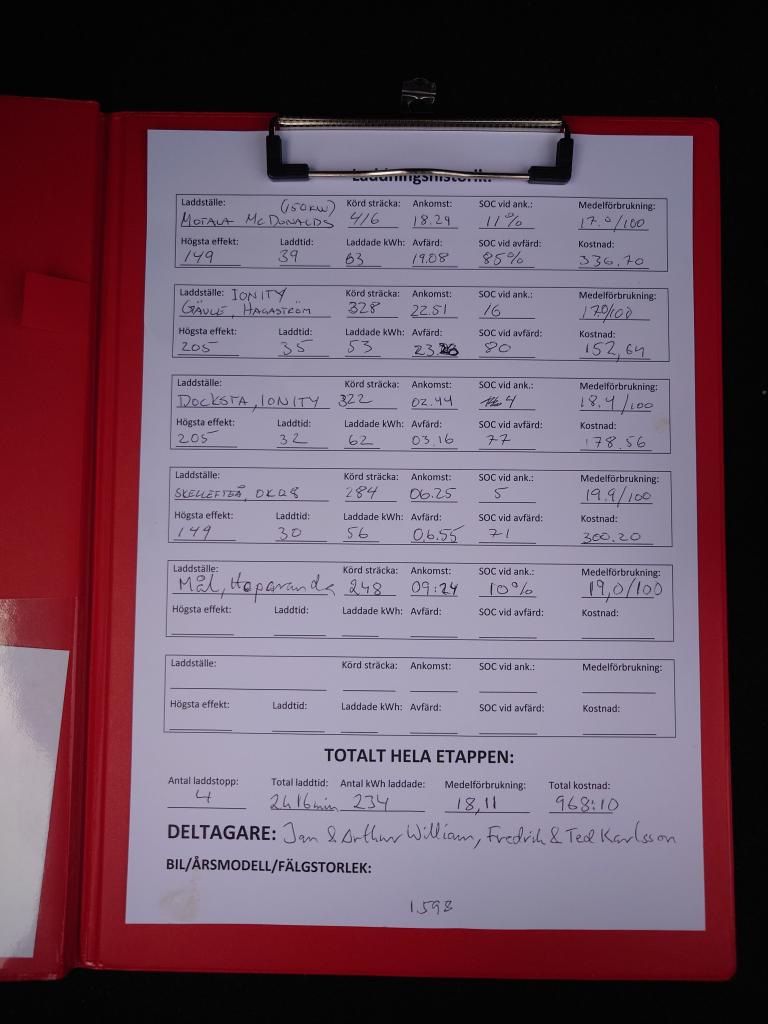 Laddningshistorik:
Laddställe: (150KW) Körd sträcka: Ankomst: SOC vid ank.: Medelförbrukning:
MOTALA McDONALDS 416 18.29 11% 17.0/100
Högsta effekt: Laddtid: Laddade kWh: Avfärd: SOC vid avfärd: Kostnad:
149 39 63 19.08 85% 336.70
Laddställe: IONITY Körd sträcka: Ankomst: SOC vid ank.: Medelförbrukning:
GÄVLE, HAGASTRÖM 328 22.51 16 17.0/100
Högsta effekt: Laddtid: Laddade kWh: Avfärd: SOC vid avfärd: Kostnad:
205 35 53 23.26 80 152,64
Laddställe: Körd sträcka: Ankomst: SOC vid ank.: Medelförbrukning:
DOCKSTA, IONITY 322 02.44 4 18.4/100
Högsta effekt: Laddtid: Laddade kWh: Avfärd: SOC vid avfärd: Kostnad:
205 32 62 03.16 77 178.56
Laddställe: Körd sträcka: Ankomst: SOC vid ank.: Medelförbrukning:
SKELLEFTEÅ, OKQ8 284 06.25 5 19.9/100
Högsta effekt: Laddtid: Laddade kWh: Avfärd: SOC vid avfärd: Kostnad:
149 30 56 06.55 71 300.20
Laddställe: Körd sträcka: Ankomst: SOC vid ank.: Medelförbrukning:
Mål, Haparanda 248 09:24 10% 19,0/100
Högsta effekt: Laddtid: Laddade kWh: Avfärd: SOC vid avfärd: Kostnad:
Laddställe: Körd sträcka: Ankomst: SOC vid ank.: Medelförbrukning:
Högsta effekt: Laddtid: Laddade kWh: Avfärd: SOC vid avfärd: Kostnad:
TOTALT HELA ETAPPEN:
Antal laddstopp: Total laddtid: Antal kWh laddade: Medelförbrukning: Total kostnad:
4 2h 16min 234 18,11 968:10
DELTAGARE: Jan & Arthur William, Fredrik & Ted Karlsson
BIL/ÅRSMODELL/FÄLGSTORLEK:
1598